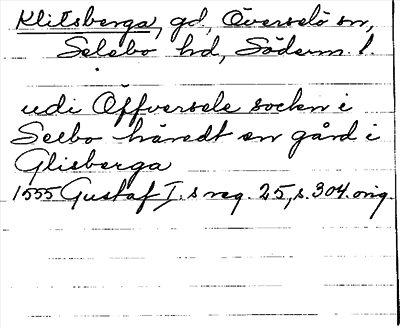 Klitsberga, gd, Överselö sn,
Selebo hd, Söderm. l.
udi Öffversele sockn i
Seebo häredt en gård i
Glisberga
1555 Gustaf I.s reg. 25, s. 304. orig.